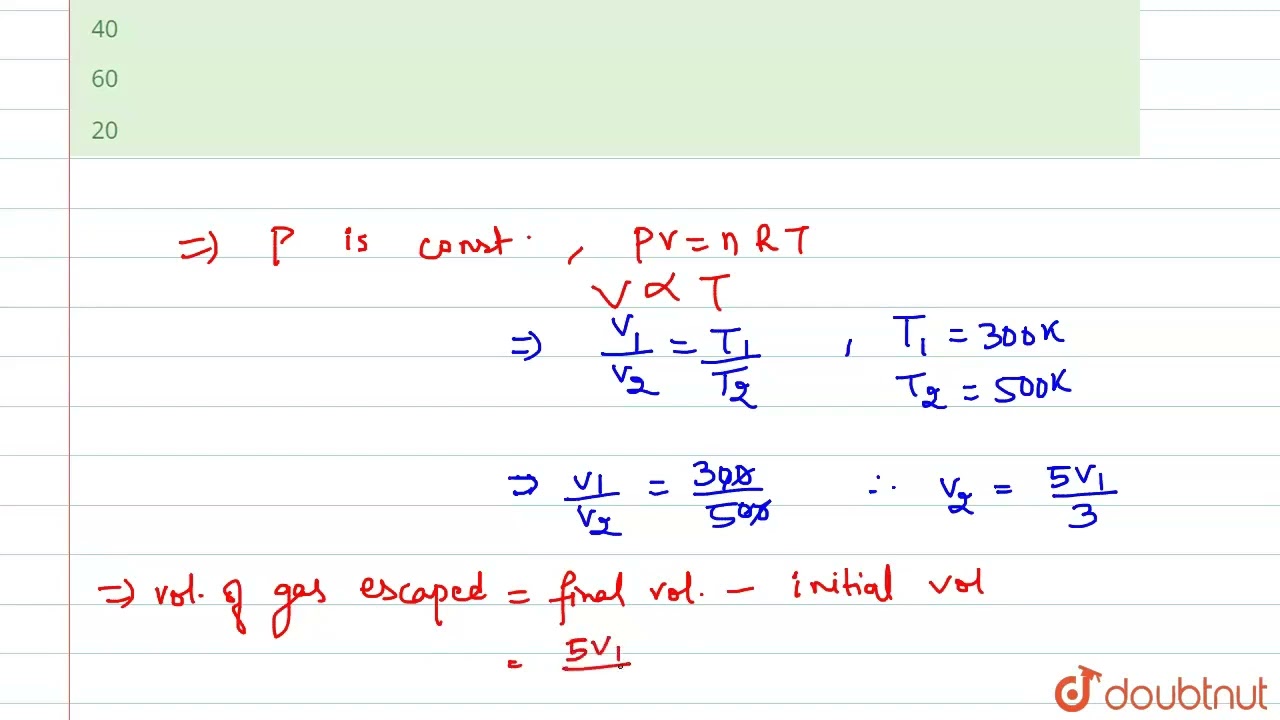 40
60
20
⇒ P is const. , PV = nRT
V ∝ T
⇒ V1/V2 = T1/T2 , T1 = 300K
T2 = 500K
⇒ V1/V2 = 300/500 ∴ V2 = 5V1/3
⇒ vol. of gas escaped = final vol. - initial vol
= 5V1
doubtnut